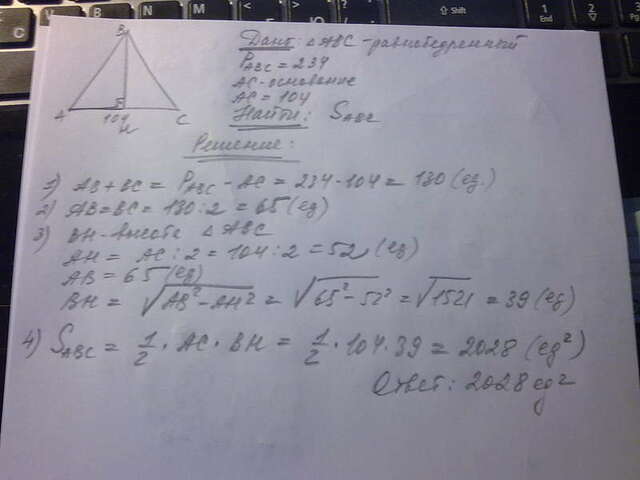 Дано: △ABC - равнобедренный
P_ABC = 234
AC - основание
AC = 104
Найти: S_ABC
B
A
C
104
H
Решение:
1) AB + BC = P_ABC - AC = 234 - 104 = 130 (ед.)
2) AB = BC = 130 : 2 = 65 (ед)
3) BH - высота △ABC
AH = AC : 2 = 104 : 2 = 52 (ед)
AB = 65 (ед)
BH = √(AB² - AH²) = √(65² - 52²) = √1521 = 39 (ед)
4) S_ABC = 1/2 · AC · BH = 1/2 · 104 · 39 = 2028 (ед²)
Ответ: 2028 ед²
Shift
1
End
2